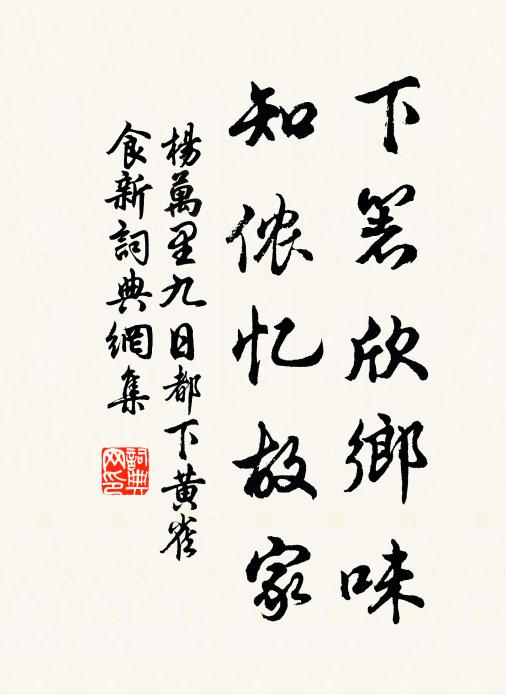 下箸欣鄉味
知侬忆故家
楊萬里九日都下黃雀
食新詞典網集
詞典
网印